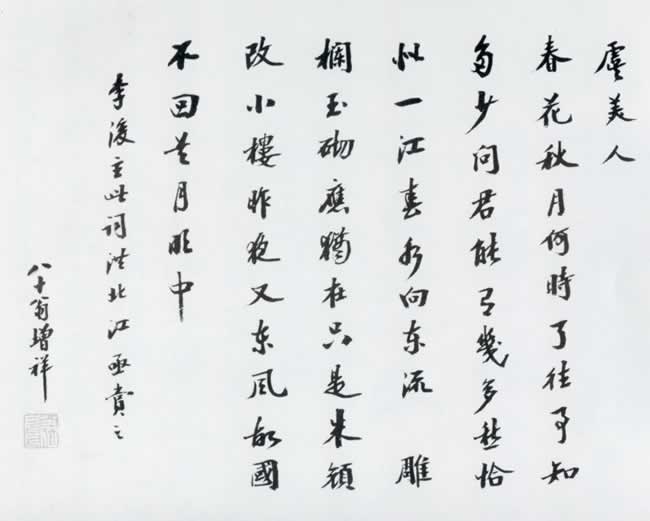 虞美人
春花秋月何時了往事知
多少問君能有幾多愁恰
似一江春水向東流 雕
欄玉砌應猶在只是朱顏
改小樓昨夜又東風故國
不回首月明中
李後主此詞洪北江亟賞之
八十翁增祥